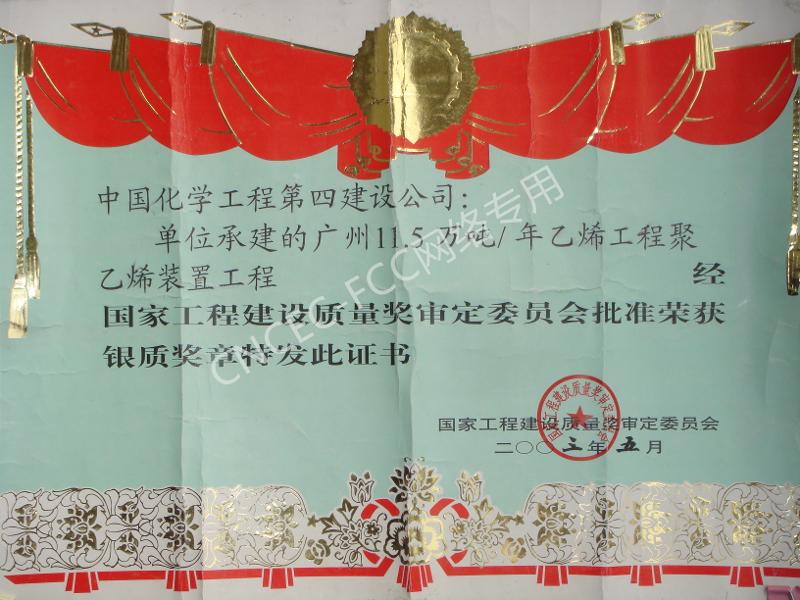 中国化学工程第四建设公司：
单位承建的广州11.5万吨/年乙烯工程聚
乙烯装置工程 经
国家工程建设质量奖审定委员会批准荣获
银质奖章特发此证书
CNCEC-FCC网络专用
国家工程建设质量奖审定委员会
国家工程建设质量奖审定委员会
二〇〇三年五月